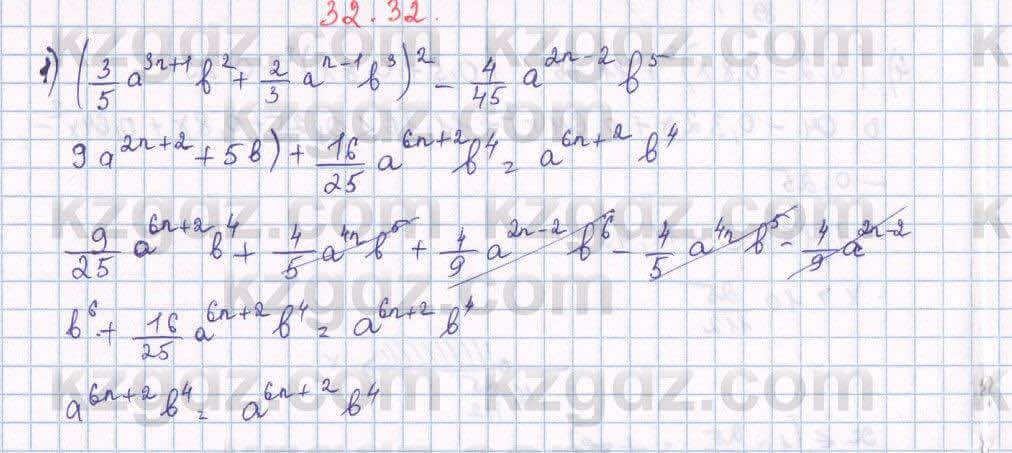 32.32.
1) (3/5 a^{3n+1} b^2 + 2/3 a^{n-1} b^3)^2 - 4/45 a^{2n-2} b^5
9a^{2n+2} + 5b) + 16/25 a^{6n+2} b^4 = a^{6n+2} b^4
9/25 a^{6n+2} b^4 + 4/5 a^{4n} b^5 + 4/9 a^{2n-2} b^6 - 4/5 a^{4n} b^5 - 4/9 a^{2n-2}
b^6 + 16/25 a^{6n+2} b^4 = a^{6n+2} b^4
a^{6n+2} b^4 = a^{6n+2} b^4
kzgdz.com
kzgdz.com
kzgdz.com
kzgdz.com
kzgdz.com